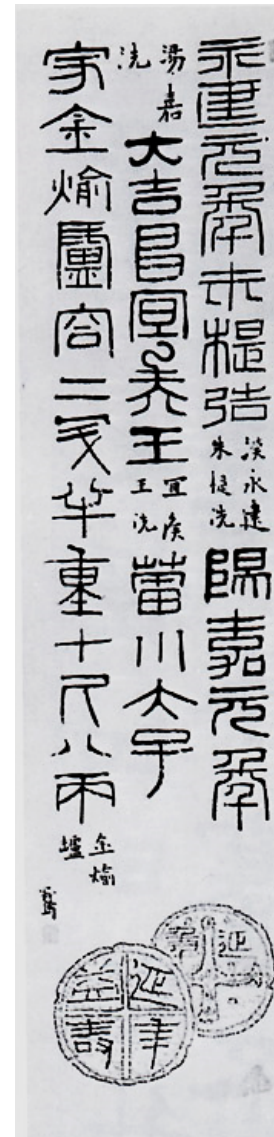 永建元年朱提造
漢永建
朱提洗
陽嘉元年
湯嘉
洗
大吉昌宜矦王
宜矦
王洗
菑川大子
家金盧容二斗半重十斤八兩
金
壚
延年
益壽
延